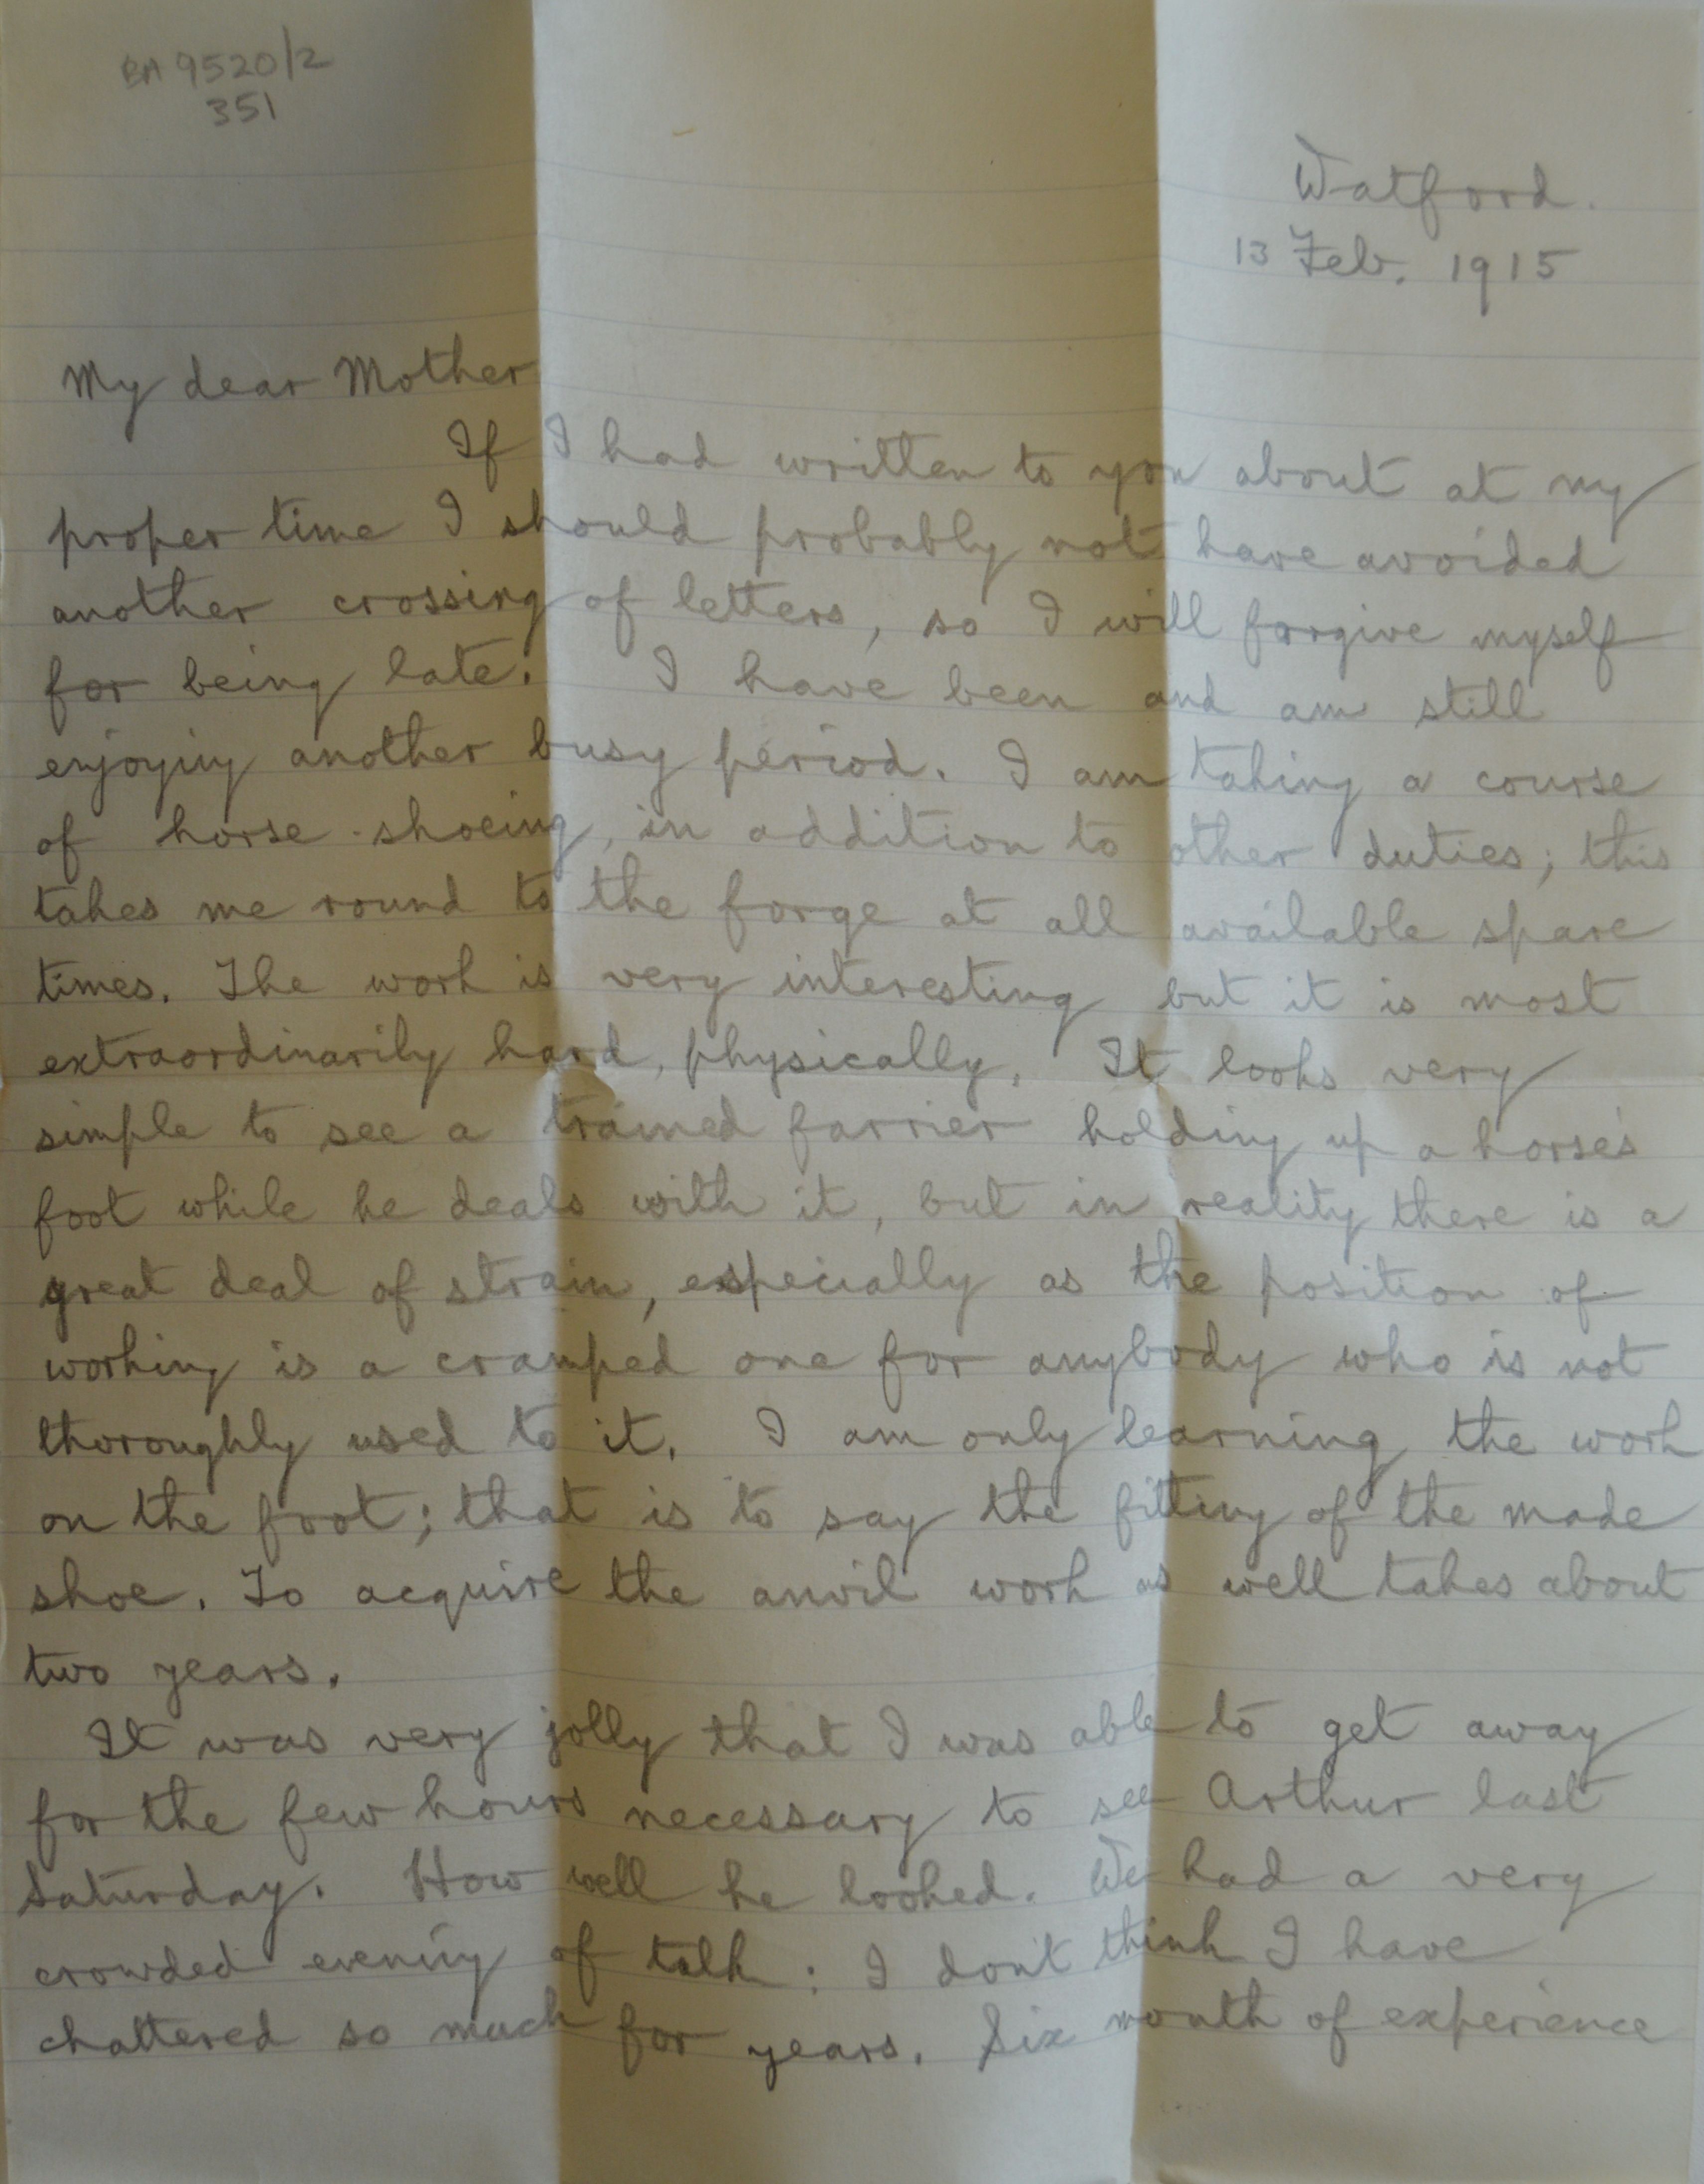 BA 9520/2
351
Watford.
13 Feb. 1915
My dear Mother
If I had written to you about at my
proper time I should probably not have avoided
another crossing of letters, so I will forgive myself
for being late. I have been and am still
enjoying another busy period. I am taking a course
of horse-shoeing, in addition to other duties; this
takes me round to the forge at all available spare
times. The work is very interesting but it is most
extraordinarily hard, physically. It looks very
simple to see a trained farrier holding up a horse's
foot while he deals with it, but in reality there is a
great deal of strain, especially as the position of
working is a cramped one for anybody who is not
thoroughly used to it. I am only learning the work
on the foot; that is to say the fitting of the made
shoe. To acquire the anvil work as well takes about
two years.
It was very jolly that I was able to get away
for the few hours necessary to see Arthur last
Saturday. How well he looked. We had a very
crowded evening of talk: I don't think I have
chattered so much for years. Six month of experience